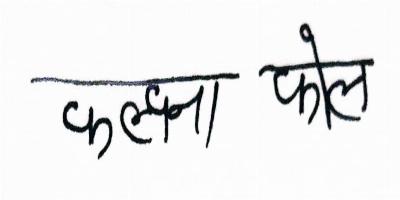 कल्पना कोल